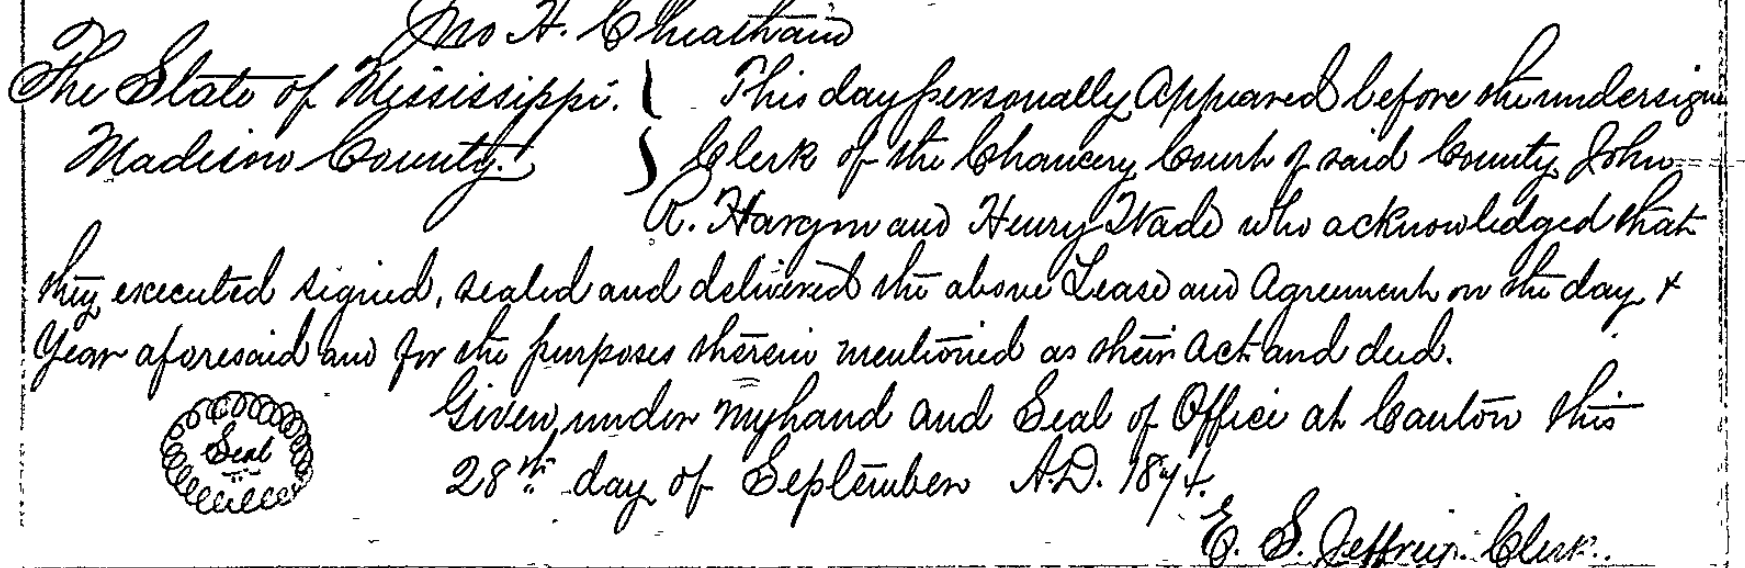 Jno H. Cheatham
The State of Mississippi. } This day personally Appeared before the undersigned
Madison County. } Clerk of the Chancery Court of said County John
R. Hargon and Henry Wade who acknowledged that
they executed signed, sealed and delivered the above Lease and Agreement on the day &
Year aforesaid and for the purposes therein mentioned as their Act and deed.
Given under my hand and Seal of Office at Canton this
Seal
28th day of September A.D. 1874.
E. S. Jeffreys. Clerk.